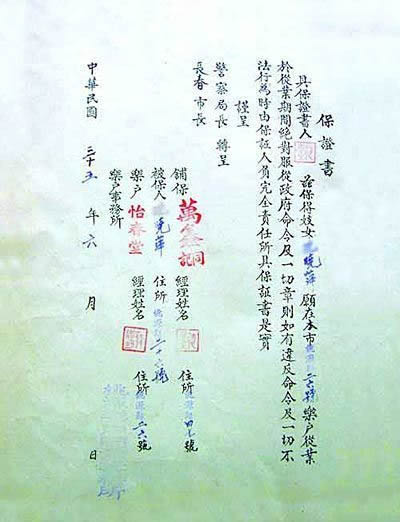 保證書
具保證書人 茲保得妓女 曉萍 願在本市 二十六號 樂户從業
於從業期間絕對服從政府命令及一切章則如有違反命令及一切不
法行為時由保証人負完全責任所具保証書是實
謹呈
警察局長 轉呈
長春市長
鋪保 萬 經理姓名 住所 四九號
被保人 曉萍 住所 二十六號
樂户 怡春堂 經理姓名 住所 二六號
樂户事務所
中華民國 三十五 年 六 月 日